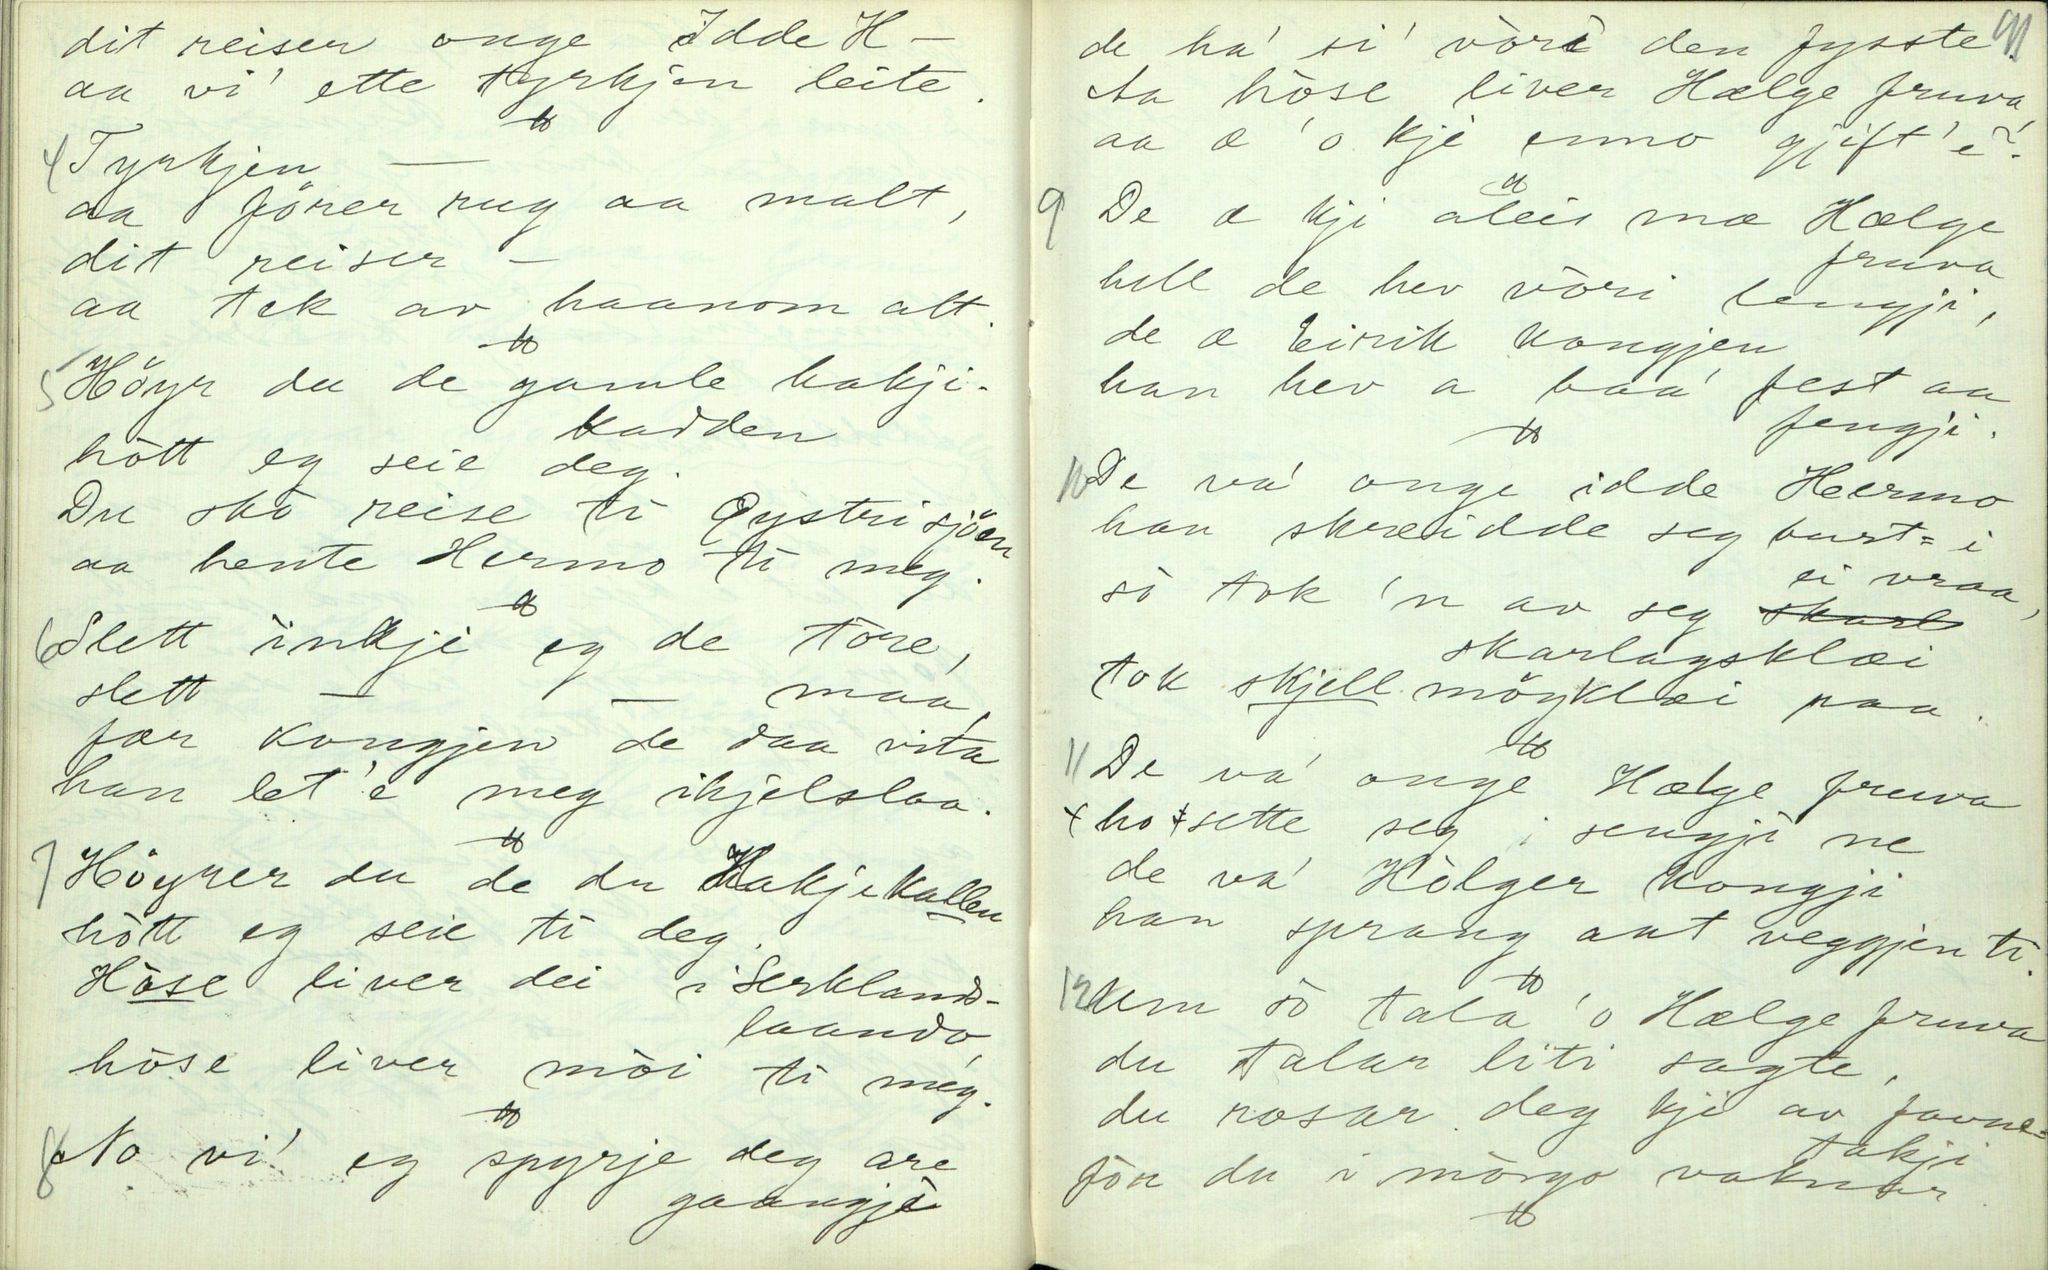 dit reiser onge Idde H –
aa vi' ette tyrkjen leite.
4 Tyrkjen —
aa förer rug aa malt,
dit reiser –
aa tek av haanom alt.
5 Höyr du de gamle kakji-
kadden
hòtt eg seie deg.
Du sko reise ti Öystrisjöen
aa hente Hermo ti meg.
6 Slett inkji eg de tore,
slett — — maa,
fær kongjen de daa vita
han let'e meg ikjelslaa.
7 Höyrer du de du Kakjekallen
hòtt eg seie ti deg.
Hòse liver dei i Serklands-
laando,
hòse liver mòi ti meg.
8 No vi' eg spyrje deg are
gaangji
91
de ha' si' vòri den fysste
Aa hòse liver Hælge fruva,
aa æ 'o kje enno gjift'e?
9 De æ kji aleis mæ Hælge
fruva
hell de hev vòri lengji,
de æ Eirik kongjen
han hev a baa' fest aa
fengji.
10 De va' onge idde Hermo
han skreidde seg burt= i
ei vraa,
sò tok 'n av seg skarl
skarlagsklæi
tok skjell möyklæi paa.
11 De va' onge Hælge fruva
x ho x sette seg i sengji ne
de va' Hòlger kongji
han sprang aat veggjen ti.
12 Um sò tala 'o Hælge fruva
du talar liti sagte,
du rosar deg kji av favne=
takji
fòn du i mòrgo vaknar